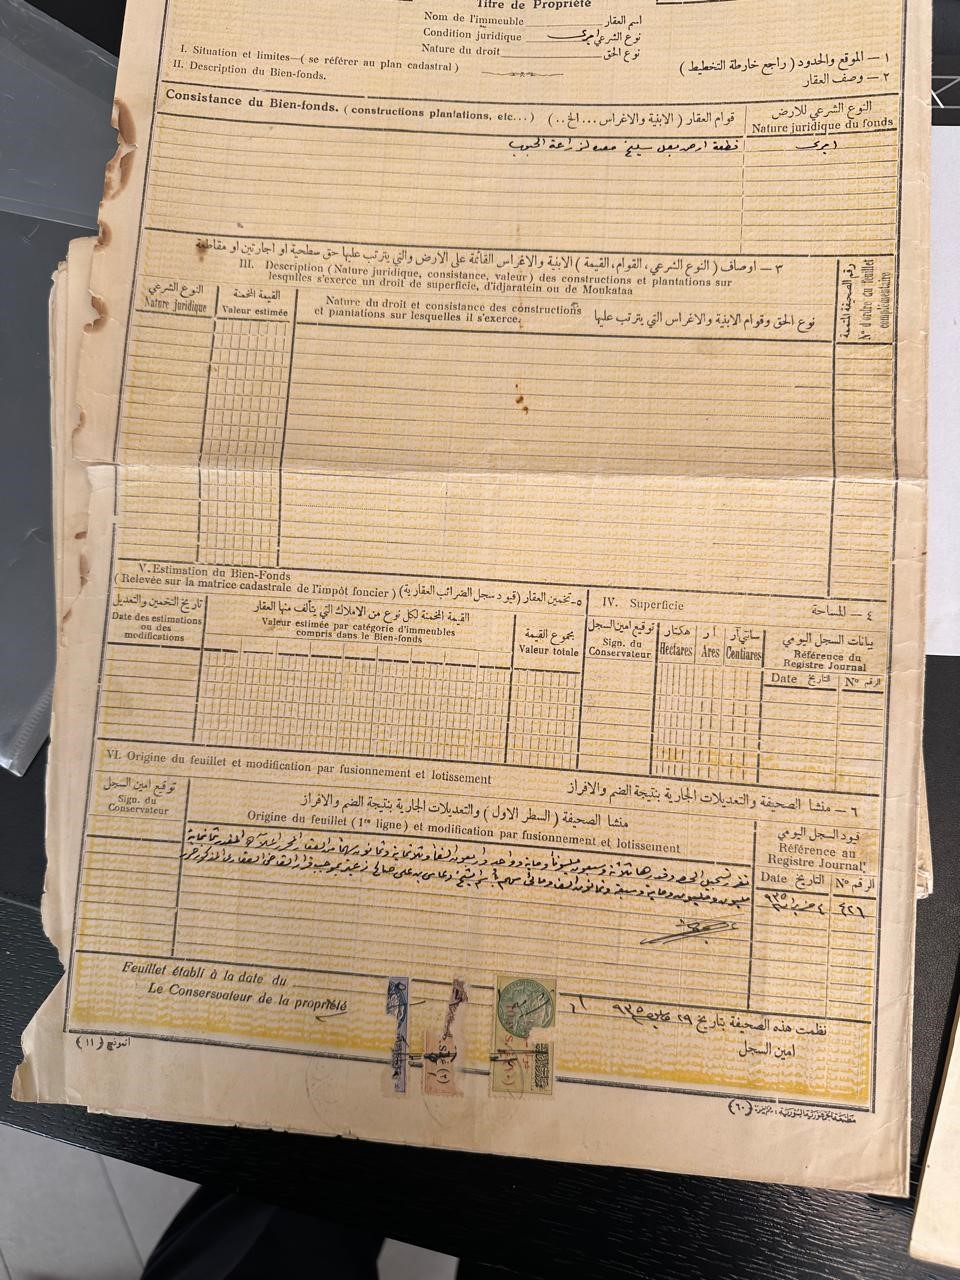 Titre de Propriété
Nom de l'immeuble اسم العقار
Condition juridique اميري نوع الشرعي
Nature du droit نوع الحق
I. Situation et limites—( se référer au plan cadastral ) ١ — الموقع والحدود ( راجع خارطة التخطيط )
II. Description du Bien-fonds. ٢ — وصف العقار
Consistance du Bien-fonds. ( constructions plantations, etc... ) قوام العقار ( الابنية والاغراس ... الخ .. )
النوع الشرعي للارض
Nature juridique du fonds
قطعة ارض بعل سليخ معدة لزراعة الحبوب
اميري
٣ — اوصاف ( النوع الشرعي، القوام، القيمة ) الابنية والاغراس القائمة على الارض والتي يترتب عليها حق سطحية او اجارتين او مقاطعة
III. Description (Nature juridique, consistance, valeur) des constructions et plantations sur
lesquelles s'exerce un droit de superficie, d'idjaratein ou de Moukataa
رقم الصحيفة المتممة
N° d'ordre du feuillet
complémentaire
النوع الشرعي
Nature juridique
القيمة المخمنة
Valeur estimée
Nature du droit et consistance des constructions
et plantations sur lesquelles il s'exerce.
نوع الحق وقوام الابنية والاغراس التي يترتب عليها
V. Estimation du Bien-Fonds
(Relevée sur la matrice cadastrale de l'impôt foncier) ٥ - تخمين العقار (قيود سجل الضرائب العقارية)
IV. Superficie ٤ — المساحة
تاريخ التخمين والتعديل
Date des estimations
ou des
modifications
القيمة المخمنة لكل نوع من الاملاك التي يتألف منها العقار
Valeur estimée par catégorie d'immeubles
compris dans le Bien-fonds
مجموع القيمة
Valeur totale
توقيع امين السجل
Sign. du
Conservateur
هكتار
Hectares
آر
Ares
سانتي آر
Centiares
بيانات السجل اليومي
Référence du
Registre Journal
Date التاريخ
N° الرقم
VI. Origine du feuillet et modification par fusionnement et lotissement ٦ - منشا الصحيفة والتعديلات الجارية بنتيجة الضم والافراز
توقيع امين السجل
Sign. du
Conservateur
منشا الصحيفة ( السطر الاول ) والتعديلات الجارية بنتيجة الضم والافراز
Origine du feuillet (1re ligne) et modification par fusionnement et lotissement
قيود السجل اليومي
Référence au
Registre Journal
Date التاريخ
N° الرقم
٤٢٦
Feuillet établi à la date du
Le Conservateur de la propriété
نظمت هذه الصحيفة بتاريخ ٢٩
امين السجل
انموذج ( ١١ )
(٦٠)